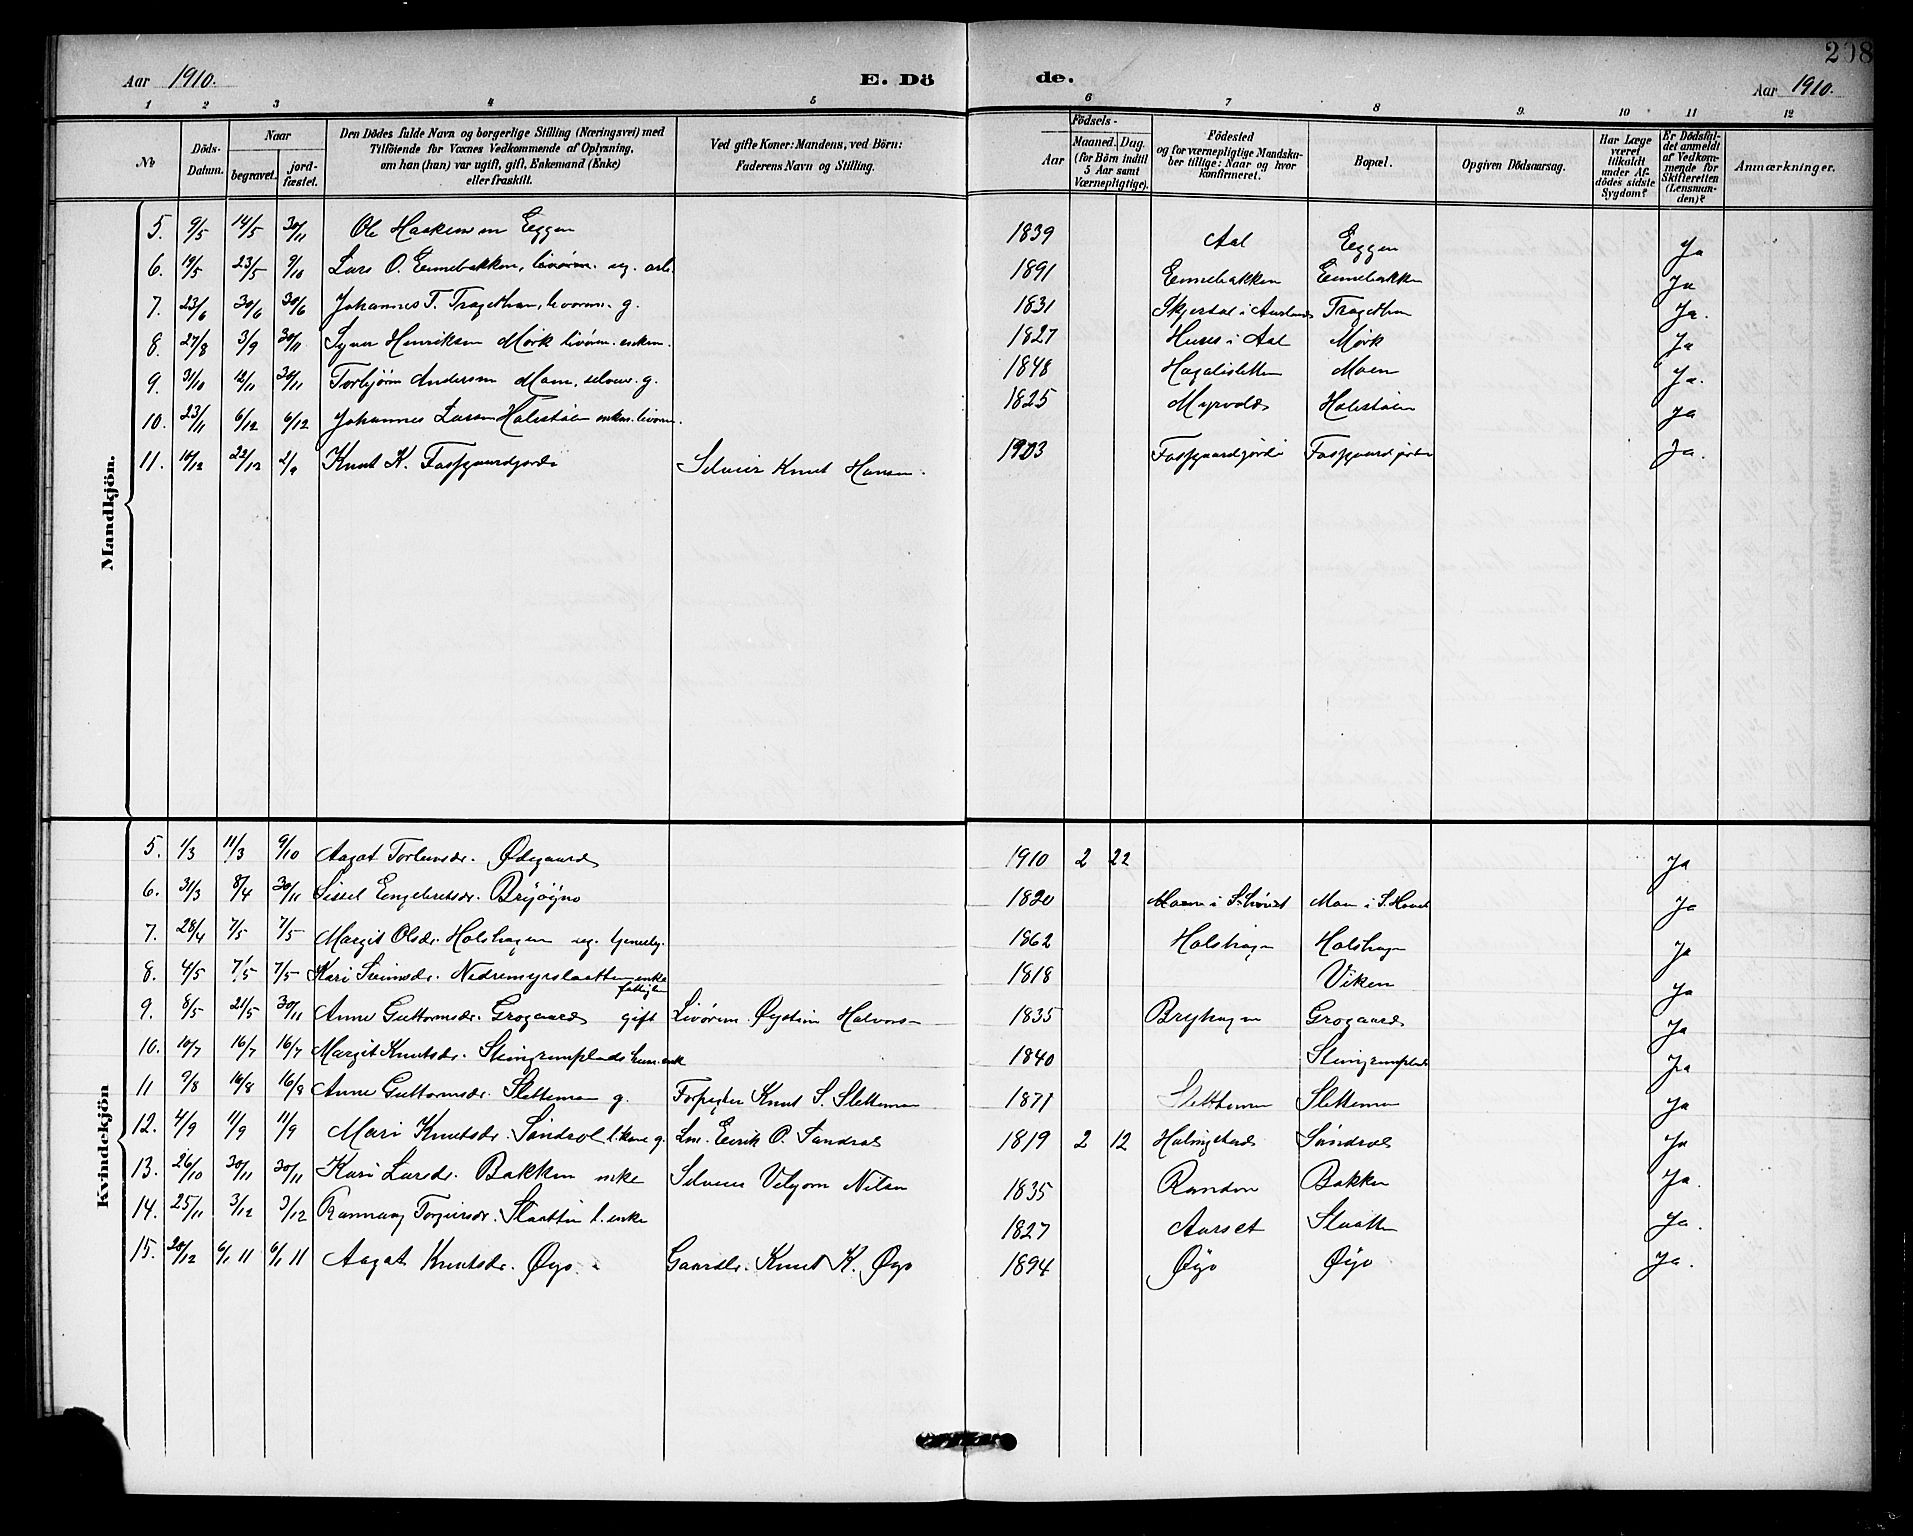 208
Aar 1910. E. Dö de. Aar 1910.
1 2 3 4 5 6 7 8 9. 10 11 12
No Döds-Datum. Naar begravet. jord-fæstet. Den Dödes fulde Navn og borgerlige Stilling (Næringsvei) med Tilföiende for Voxnes Vedkommende af Oplysning, om han (hun) var ugift, gift, Enkemand (Enke) eller fraskilt. Ved gifte Koner: Mandens, ved Börn: Faderens Navn og Stilling. Födsels- Aar Maaned. Dag. (for Börn indtil 5 Aar samt Værnepligtige). Födested og for værnepligtige Mandska-ber tillige: Naar og hvor konfirmeret. Bopæl. Opgiven Dödsaarsag. Har Læge været tilkaldt under Af-dödes sidste Sygdom? Er Dödsfal-det anmeldt af Vedkom-mende for Skifteretten (Lensman-den)? Anmærkninger.
Mandkjön.
5. 9/5 14/5 30/11 Ole Haakensen Eggen 1839 Aal Eggen Ja
6. 19/5 23/5 9/10 Lars O. Ennebakken, ug. arb. 1891 Ennebakken Ennebakken Ja
7. 23/6 30/6 30/6 Johannes T. Tragethon, livörm. g. 1831 Skjerdal i Aurland Tragethon Ja.
8. 27/8 3/9 30/11 Syver Henriksen Mørk livörm. enkem. 1827 Huus i Aal Mørk Ja
9. 31/10 12/11 30/11 Torbjørn Andersen Moen, selveier. g. 1848 Moen Ja.
10. 23/11 6/12 6/12 Johannes Larsen enkem. livörm. 1825 Myrvold Ja
11. 14/12 22/12 2/9 Knut K. Fossgaardjorde Selveier Knut Hansen. 1903 Fossgaardjorde Fossgaardjorde Ja.
Kvindekjön
5. 1/3 11/3 9/10 Aagot Torleivsdr. Ødegaard 1910 2 22 Ja
6. 31/3 8/4 30/11 Sissel Engebretsdr. Bryøyno 1820 Moen i Moen i Ja
7. 28/4 7/5 7/5 Margit Olsdr. Holshagen ug. 1862 Holshagen Holshagen Ja
8. 4/5 7/5 7/5 Kari Sveinsdr. Nedremyrslaatten enke 1818 Viken Ja
9. 8/5 21/5 30/11 Anne Guttormsdr. Grøgaard gift Livörm. Øystein Halvors- 1835 Bryhagen Grøgaard Ja
10. 10/7 16/7 16/7 Margit Knutsdr. 1840 Ja
11 9/8 16/8 16/9 Anne Guttormsdr. Slettemoen g. Forpagter Knut S. Slettemoen 1871 Slettemoen Slettemoen Ja
12. 4/9 11/9 11/9 Mari Knutsdr. Sandrol l.kone g. Lm. Eirik O. Sandrol 1819 2 12 Sandrol Ja
13. 26/10 30/11 30/11 Kari Larsdr. Bakken enke Selveier Nilsen 1835 Bakken Ja.
14. 25/11 3/12 3/12 Rannveig Torgeirsdr. Slaatten l. enke 1827 Aurset Slaatten Ja.
15. 28/12 6/1 11 6/1 11 Aagot Knutsdr. Øyo. Gaardbr. Knut K. Øyo 1894 Øyo Øyo Ja.